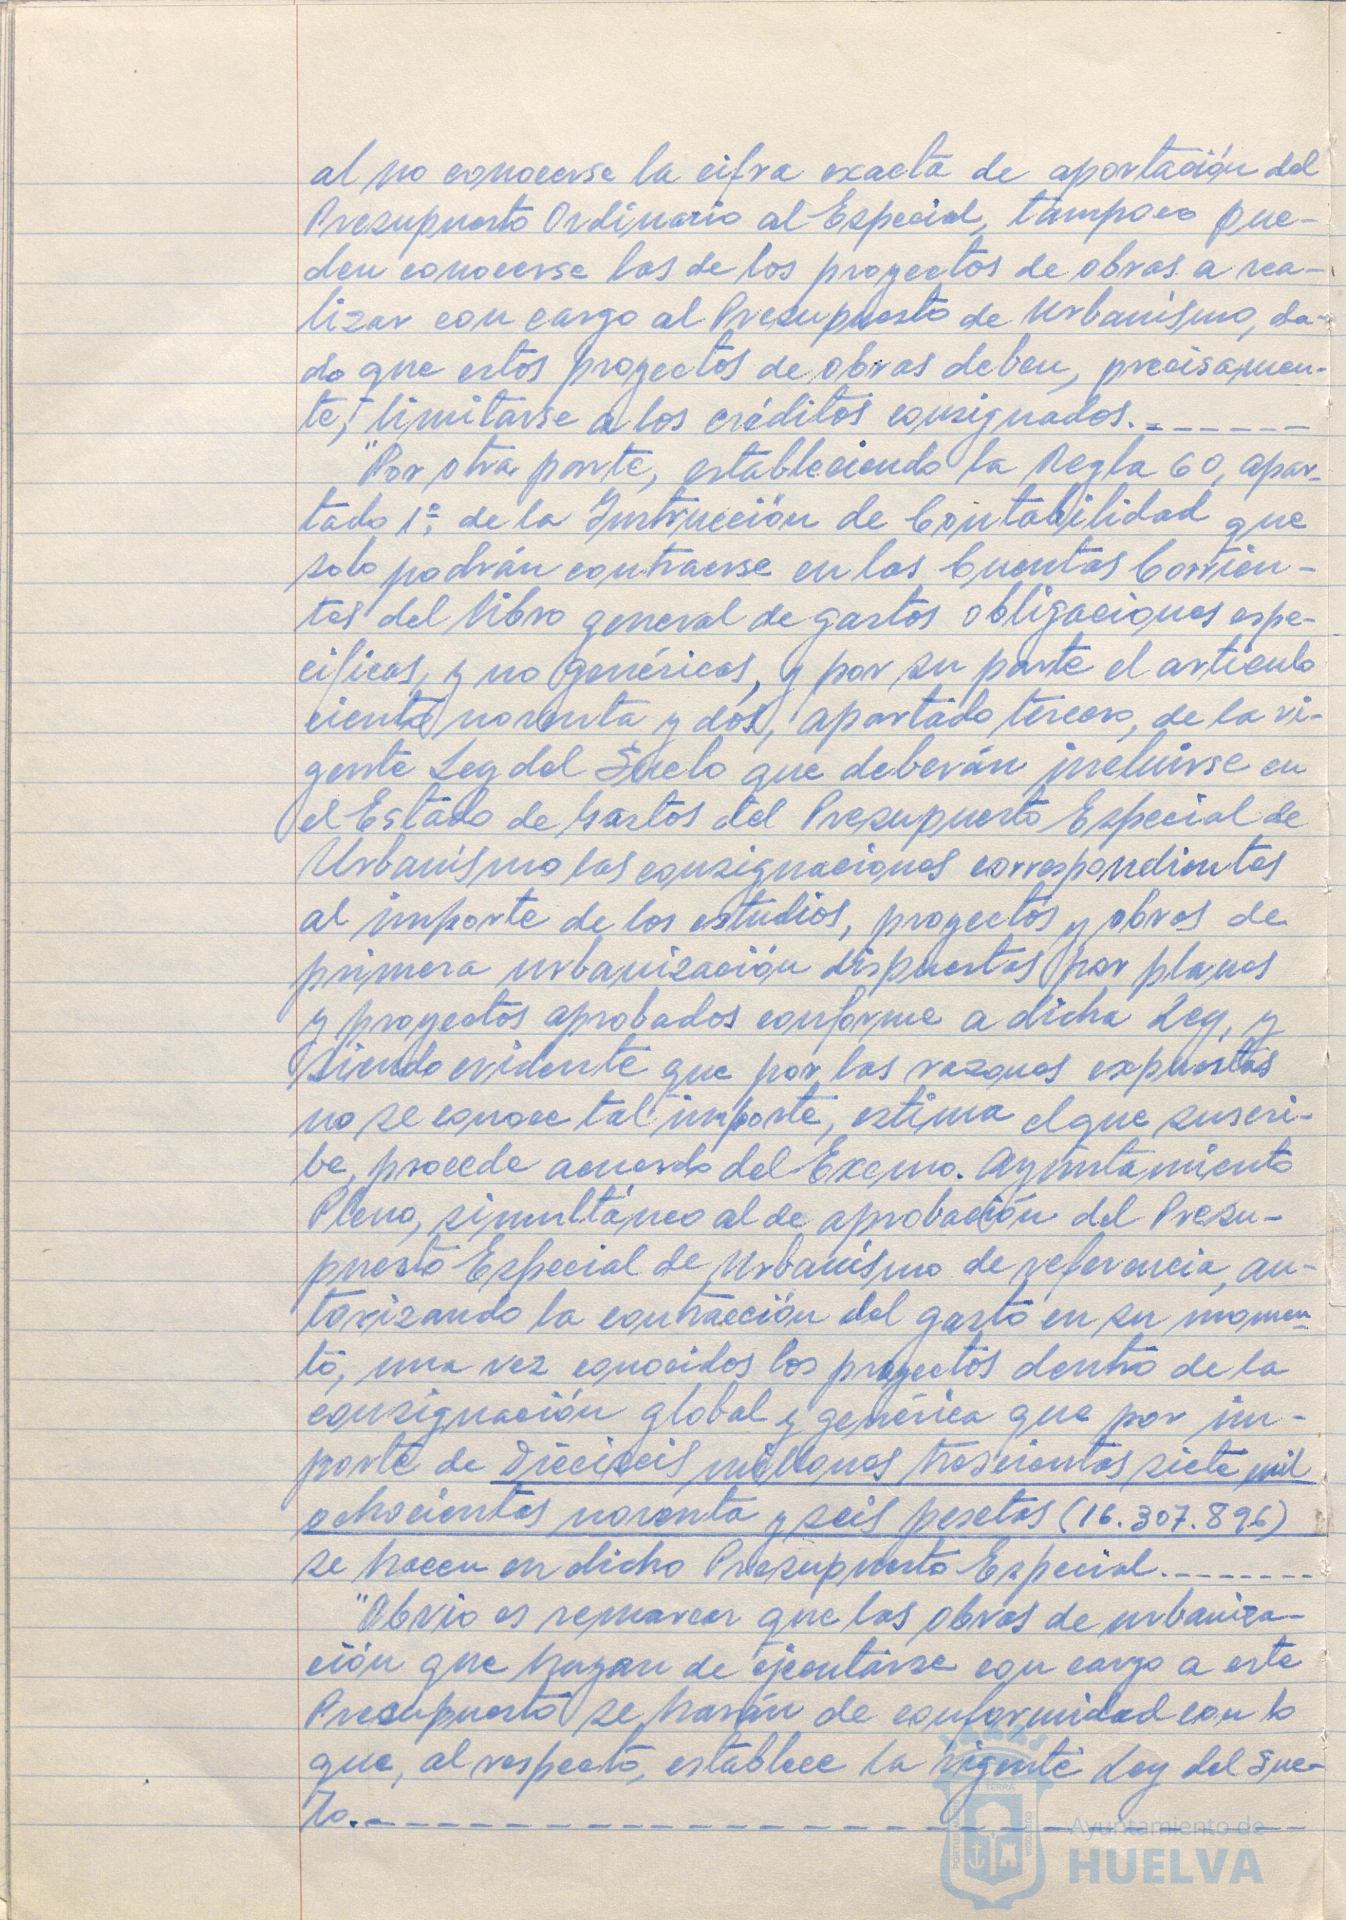 al no conocerse la cifra exacta de aportación del
Presupuesto Ordinario al Especial, tampoco pue-
den conocerse las de los proyectos de obras a rea-
lizar con cargo al Presupuesto de Urbanismo, da-
do que estos proyectos de obras deben, precisamen-
te, limitarse a los créditos consignados.
"Por otra parte, estableciendo la Regla 60, apar-
tado 1º, de la Instrucción de Contabilidad que
solo podrán contraerse en las Cuentas Corrien-
tes del Libro general de gastos obligaciones espe-
cíficas, y no genéricas, y por su parte el artículo
ciento noventa y dos, apartado tercero, de la vi-
gente Ley del Suelo que deberán incluirse en
el Estado de Gastos del Presupuesto Especial de
Urbanismo las consignaciones correspondientes
al importe de los estudios, proyectos y obras de
primera urbanización dispuestas por planes
y proyectos aprobados conforme a dicha Ley, y
siendo evidente que por las razones expuestas
no se conoce tal importe, estima el que suscri-
be, procede acuerdo del Excmo. Ayuntamiento
Pleno, simultáneo al de aprobación del Presu-
puesto Especial de Urbanismo de referencia, au-
torizando la contracción del gasto en su momen-
to, una vez conocidos los proyectos dentro de la
consignación global y genérica que por im-
porte de Dieciseis millones trescientas siete mil
ochocientas noventa y seis pesetas (16.307.896)
se hacen en dicho Presupuesto Especial.
"Obvio es remarcar que las obras de urbaniza-
ción que hayan de ejecutarse con cargo a este
Presupuesto se harán de conformidad con lo
que, al respecto, establece la vigente Ley del Sue-
lo.
Ayuntamiento de
HUELVA